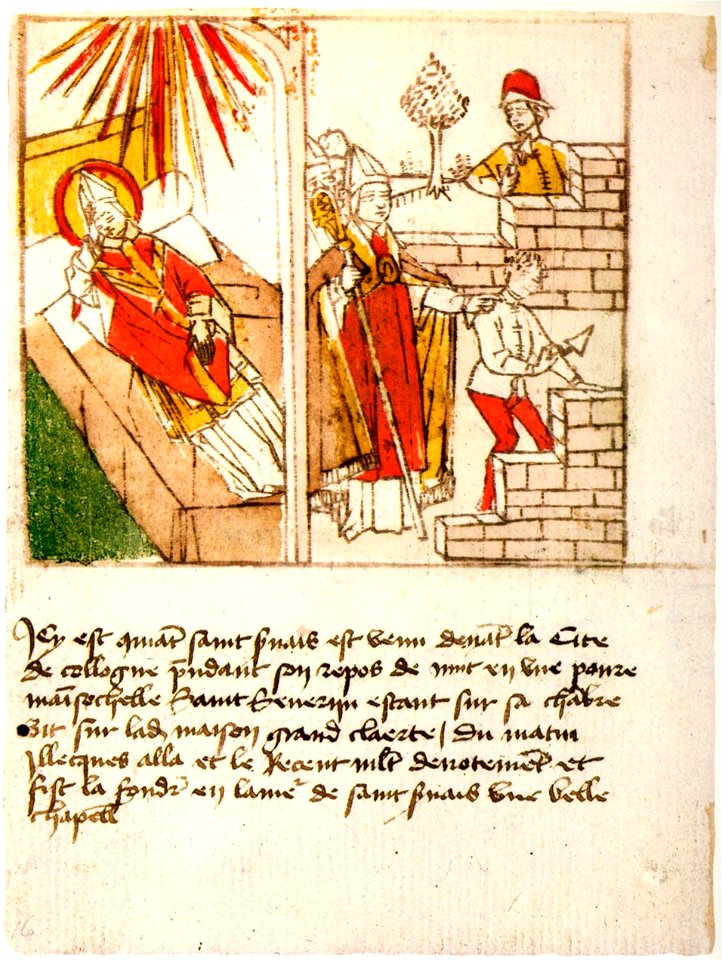 Icy est quāt saint s̄uais est venu deuāt la Cite
de collogne p̄ndant son repos de nuit en vne poure
maisōchelle Saint Seuerin estant sur sa chābre
Vit sur lad maison grand claerte / du matin
Illecques alla et le Recent mlt̄ deuotemēt et
fist la fondr̄ en lamē de saint s̄uais vne belle
chapell
16